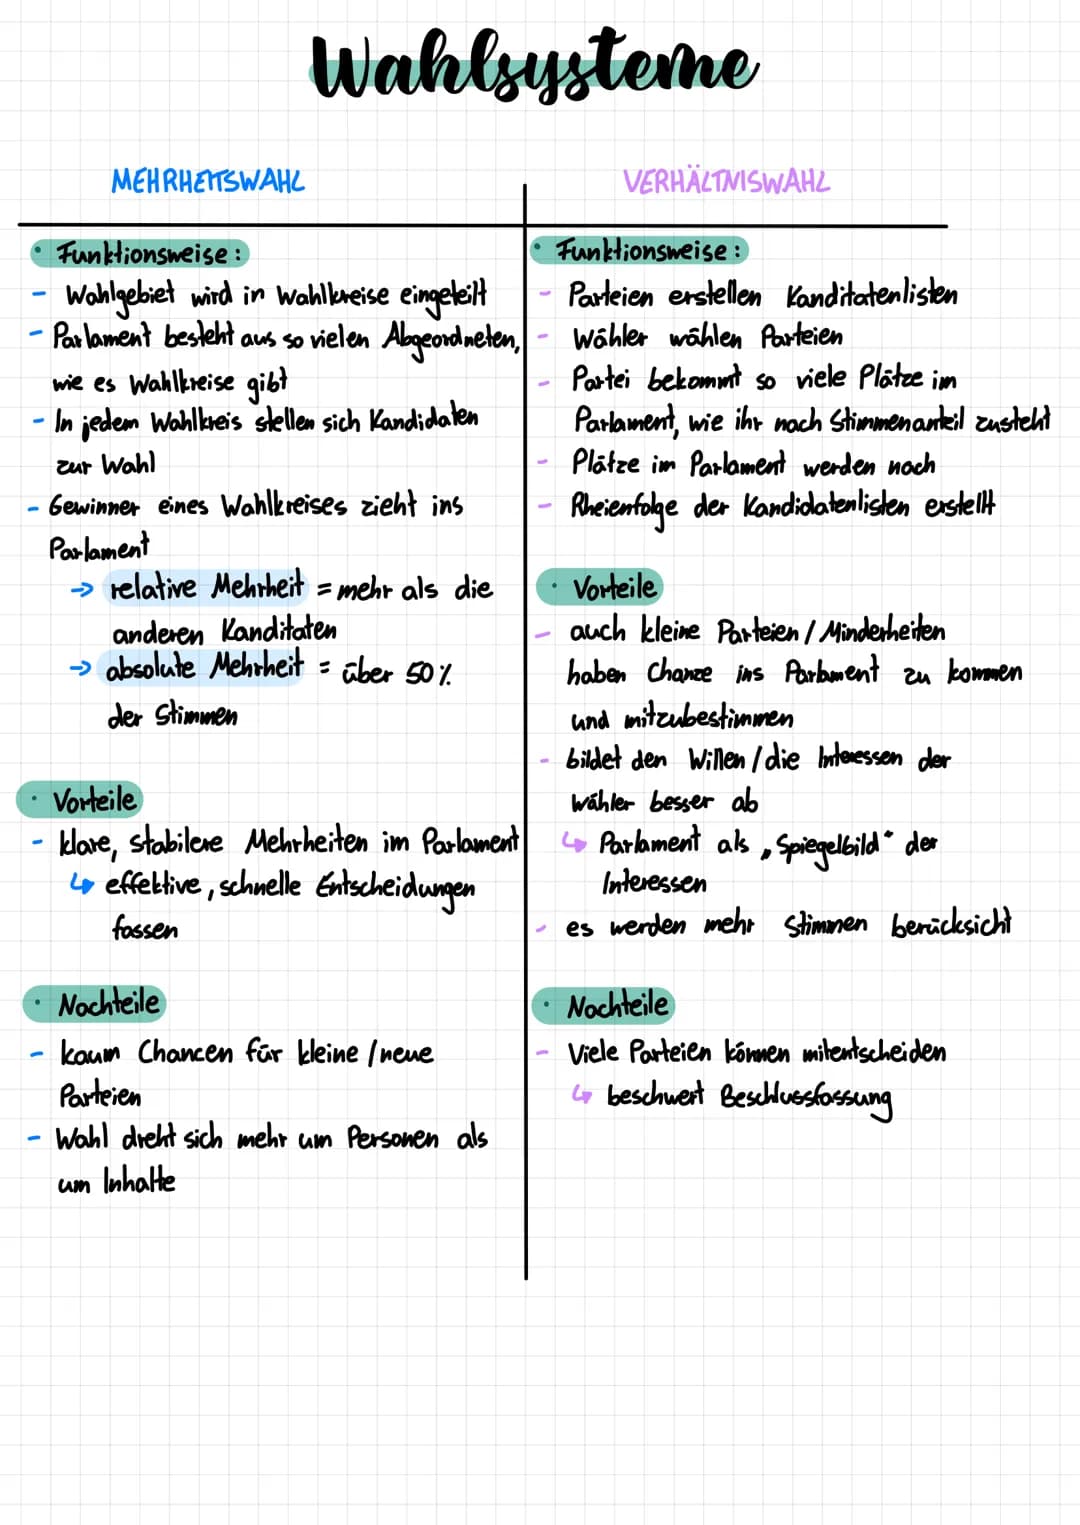 Wahlsysteme
MEHRHEITSWAHL
• Funktionsweise:
- Wahlgebiet wird in Wahlkreise eingeteilt
- Parlament besteht aus so vielen Abgeordneten,
wie es Wahlkreise gibt
- In jedem Wahlkreis stellen sich Kandidaten
zur Wahl
- Gewinner eines Wahlkreises zieht ins
Parlament
→ relative Mehrheit = mehr als die
anderen Kanditaten
→ absolute Mehrheit = über 50%
der Stimmen
• Vorteile
- klare, stabilere Mehrheiten im Parlament
↳ effektive, schnelle Entscheidungen
fassen
• Nachteile
- kaum Chancen für kleine/neue
Parteien
- Wahl dreht sich mehr um Personen als
um Inhalte
VERHÄLTNISWAHL
• Funktionsweise:
- Parteien erstellen Kanditatenlisten
- Wähler wählen Parteien
- Partei bekommt so viele Plätze im
Parlament, wie ihr nach Stimmenanteil zusteht
- Plätze im Parlament werden nach
- Rheienfolge der Kandidatenlisten erstellt
• Vorteile
- auch kleine Parteien/Minderheiten
haben Chance ins Parlament zu kommen
und mitzubestimmen
- bildet den Willen/die Interessen der
Wähler besser ab
↳ Parlament als „Spiegelbild“ der
Interessen
- es werden mehr Stimmen berücksicht
• Nachteile
- Viele Parteien können mitentscheiden
↳ beschwert Beschlussfassung